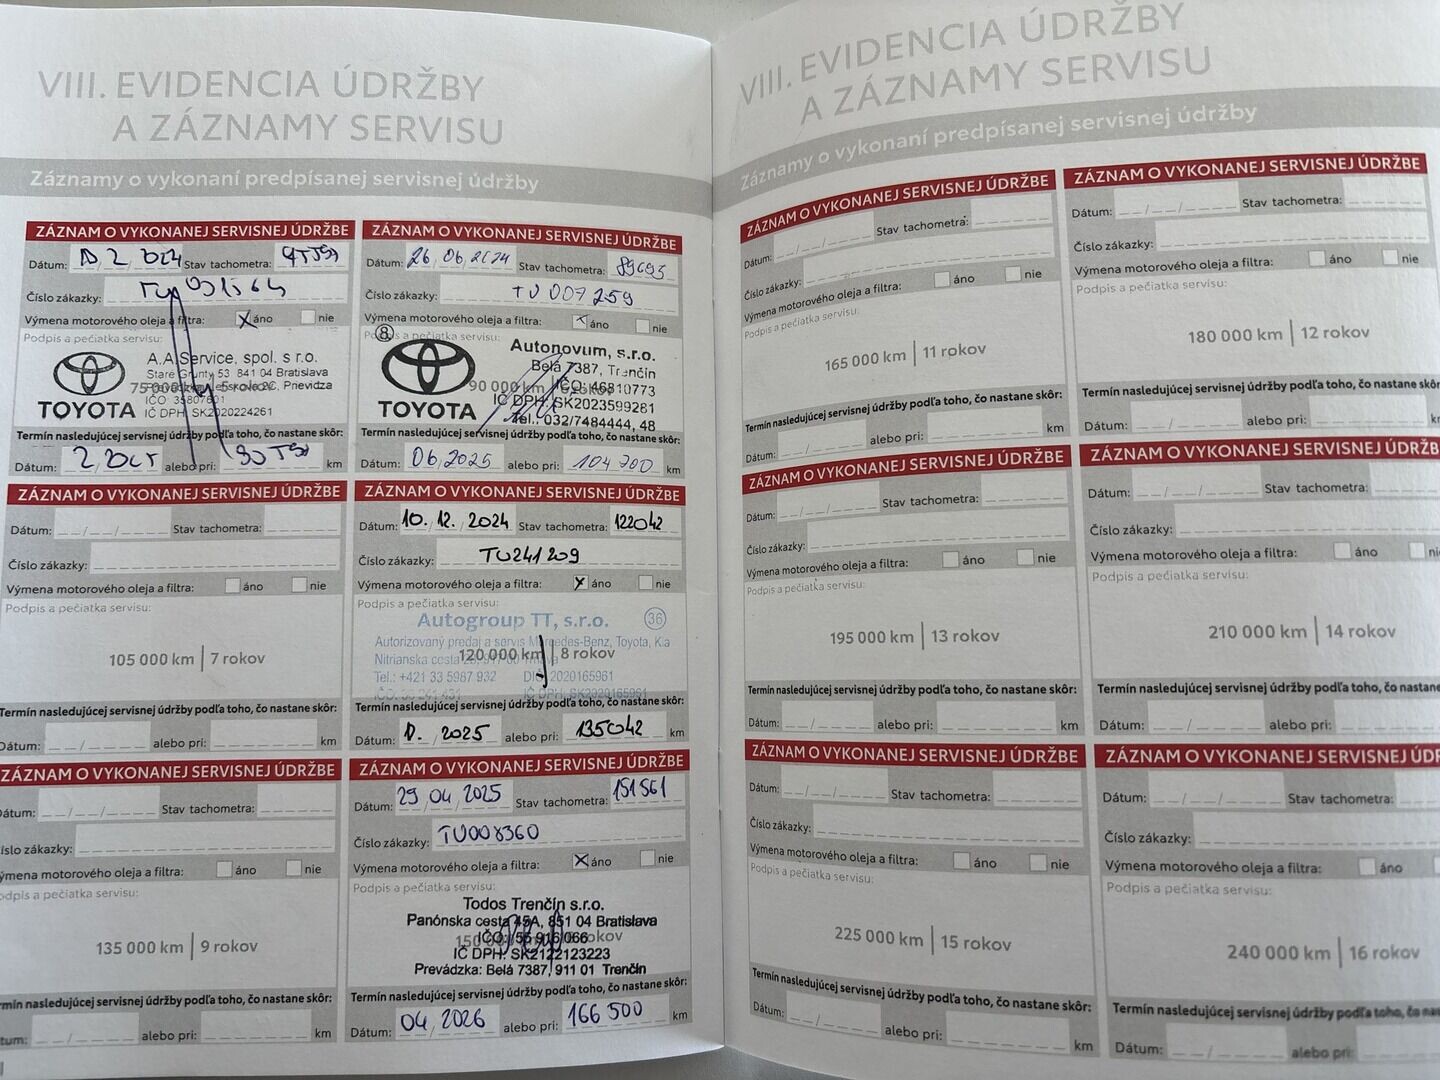 VIII. EVIDENCIA ÚDRŽBY
A ZÁZNAMY SERVISU
Záznamy o vykonaní predpísanej servisnej údržby
ZÁZNAM O VYKONANEJ SERVISNEJ ÚDRŽBE
Dátum: 2 2024 Stav tachometra:
Číslo zákazky:
Výmena motorového oleja a filtra: X áno nie
Podpis a pečiatka servisu:
TOYOTA
A.A.Service, spol. s r.o.
Staré Grunty 53 841 04 Bratislava
75 000 km 5 rokov Prievidza
IČO 35807601
IČ DPH: SK2020224261
Termín nasledujúcej servisnej údržby podľa toho, čo nastane skôr:
Dátum: 2, 2025 alebo pri: km
ZÁZNAM O VYKONANEJ SERVISNEJ ÚDRŽBE
Dátum: 26, 06, 2024 Stav tachometra: 89693
Číslo zákazky: TU 007259
Výmena motorového oleja a filtra: x áno nie
Podpis a pečiatka servisu:
8
TOYOTA
Autonovum, s.r.o.
Belá 7387, Trenčín
90 000 km IČO: 46810773
IČ DPH: SK2023599281
Tel.: 032/7484444, 48
Termín nasledujúcej servisnej údržby podľa toho, čo nastane skôr:
Dátum: 06, 2025 alebo pri: 104 700 km
ZÁZNAM O VYKONANEJ SERVISNEJ ÚDRŽBE
Dátum: Stav tachometra:
Číslo zákazky:
Výmena motorového oleja a filtra: áno nie
Podpis a pečiatka servisu:
105 000 km | 7 rokov
Termín nasledujúcej servisnej údržby podľa toho, čo nastane skôr:
Dátum: alebo pri: km
ZÁZNAM O VYKONANEJ SERVISNEJ ÚDRŽBE
Dátum: 10. 12. 2024 Stav tachometra: 122042
Číslo zákazky: TU241209
Výmena motorového oleja a filtra: x áno nie
Podpis a pečiatka servisu:
Autogroup TT, s.r.o. 36
Autorizovaný predaj a servis Mercedes-Benz, Toyota, Kia
Nitrianska cesta 120 000 km | 8 rokov
Tel.: +421 33 5987 932 DIČ: 2020165961
IČ DPH: SK2020165961
Termín nasledujúcej servisnej údržby podľa toho, čo nastane skôr:
Dátum: 2025 alebo pri: 135042 km
ZÁZNAM O VYKONANEJ SERVISNEJ ÚDRŽBE
Dátum: Stav tachometra:
Číslo zákazky:
Výmena motorového oleja a filtra: áno nie
Podpis a pečiatka servisu:
135 000 km | 9 rokov
Termín nasledujúcej servisnej údržby podľa toho, čo nastane skôr:
Dátum: alebo pri: km
ZÁZNAM O VYKONANEJ SERVISNEJ ÚDRŽBE
Dátum: 29 04 2025 Stav tachometra: 151561
Číslo zákazky: TU008360
Výmena motorového oleja a filtra: X áno nie
Podpis a pečiatka servisu:
Todos Trenčín s.r.o.
Panónska cesta 45A, 851 04 Bratislava
IČO: 55 916 066 rokov
IČ DPH: SK2122123223
Prevádzka: Belá 7387, 911 01 Trenčín
Termín nasledujúcej servisnej údržby podľa toho, čo nastane skôr:
Dátum: 04, 2026 alebo pri: 166 500 km
VIII. EVIDENCIA ÚDRŽBY
A ZÁZNAMY SERVISU
Záznamy o vykonaní predpísanej servisnej údržby
ZÁZNAM O VYKONANEJ SERVISNEJ ÚDRŽBE
Dátum: Stav tachometra:
Číslo zákazky:
Výmena motorového oleja a filtra: áno nie
Podpis a pečiatka servisu:
165 000 km | 11 rokov
Termín nasledujúcej servisnej údržby podľa toho, čo nastane skôr:
Dátum: alebo pri: km
ZÁZNAM O VYKONANEJ SERVISNEJ ÚDRŽBE
Dátum: Stav tachometra:
Číslo zákazky:
Výmena motorového oleja a filtra: áno nie
Podpis a pečiatka servisu:
180 000 km | 12 rokov
Termín nasledujúcej servisnej údržby podľa toho, čo nastane skôr:
Dátum: alebo pri:
ZÁZNAM O VYKONANEJ SERVISNEJ ÚDRŽBE
Dátum: Stav tachometra:
Číslo zákazky:
Výmena motorového oleja a filtra: áno nie
Podpis a pečiatka servisu:
195 000 km | 13 rokov
Termín nasledujúcej servisnej údržby podľa toho, čo nastane skôr:
Dátum: alebo pri: km
ZÁZNAM O VYKONANEJ SERVISNEJ ÚDRŽB
Dátum: Stav tachometra:
Číslo zákazky:
Výmena motorového oleja a filtra: áno ni
Podpis a pečiatka servisu:
210 000 km | 14 rokov
Termín nasledujúcej servisnej údržby podľa toho, čo nastane
Dátum: alebo pri:
ZÁZNAM O VYKONANEJ SERVISNEJ ÚDRŽBE
Dátum: Stav tachometra:
Číslo zákazky:
Výmena motorového oleja a filtra: áno nie
Podpis a pečiatka servisu:
225 000 km | 15 rokov
Termín nasledujúcej servisnej údržby podľa toho, čo nastane skôr:
Dátum: alebo pri: km
ZÁZNAM O VYKONANEJ SERVISNEJ ÚDR
Dátum: Stav tachometra:
Číslo zákazky:
Výmena motorového oleja a filtra: áno
Podpis a pečiatka servisu:
240 000 km | 16 rokov
Termín nasledujúcej servisnej údržby podľa toho, čo
Dátum: alebo pri: